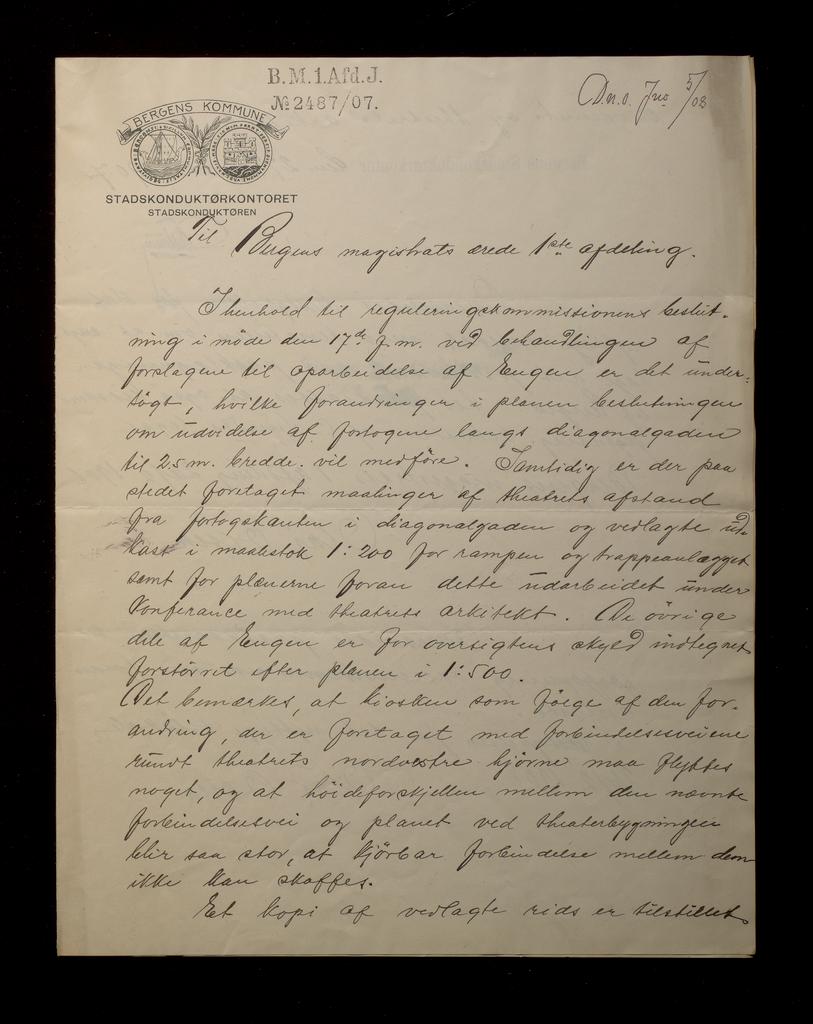 B.M.1.Afd.J.
№ 2487/07.
D.n.o. Jno 5/08
BERGENS KOMMUNE
STADSKONDUKTØRKONTORET
STADSKONDUKTØREN
Til Bergens magistrats ærede 1ste afdeling.
Ihenhold til reguleringskommissionens beslut-
ning i möde den 17de f.m. ved behandlingen af
forslagene til oparbeidelse af Engen er det under-
sögt, hvilke forandringer i planen beslutningen
om udvidelse af fortogene langs diagonalgaden
til 2.5 m. bredde vil medföre. Samtidig er der paa
stedet foretaget maalinger af theatrets afstand
fra fortogskanten i diagonalgaden og vedlagte ud-
kast i maalestok 1:200 for rampen og trappeanlægget
samt for plænerne foran dette udarbeidet under
Konferance med theatrets arkitekt. De övrige
dele af Engen er for oversigtens skyld indtegnet
forstörret efter planen i 1:500.
Det bemærkes, at kiosken som fölge af den for-
andring, der er foretaget med forbindelsesveiene
rundt theatrets nordvestre hjörne maa flyttes
noget, og at höideforskjellen mellem den nævnte
forbindelsesvei og planet ved theaterbygningen
blir saa stor, at kjörbar forbindelse mellem dem
ikke kan skaffes.
Et kopi af vedlagte rids er tilstillet